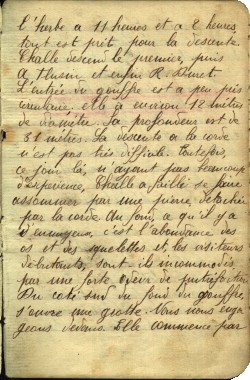 l'herbe a 11 heures et a 2 heures
tout est prêt pour la descente.
Challe descend le premier, puis
A. et enfin R.
L'entrée du gouffre est a peu près
circulaire. elle a environ 12 mètres
de diamètre. Sa profondeur est de
31 mètres. La descente a la corde
n'est pas très difficile. Toutefois,
ce jour là, n'ayant pas beaucoup
d'Expérience, Challe a failli se faire
assommer par une pierre détachée
par la corde. Au fond, a qu'il y a
d'ennuyeux, c'est l'abondance des
os et des squelettes et les visiteurs
débutants, sont ils incommodés
par une forte odeur de putréfaction
Du coté sud du fond du gouffre
s'ouvre une grotte. Nous nous enga
geons dedans. Elle commence par